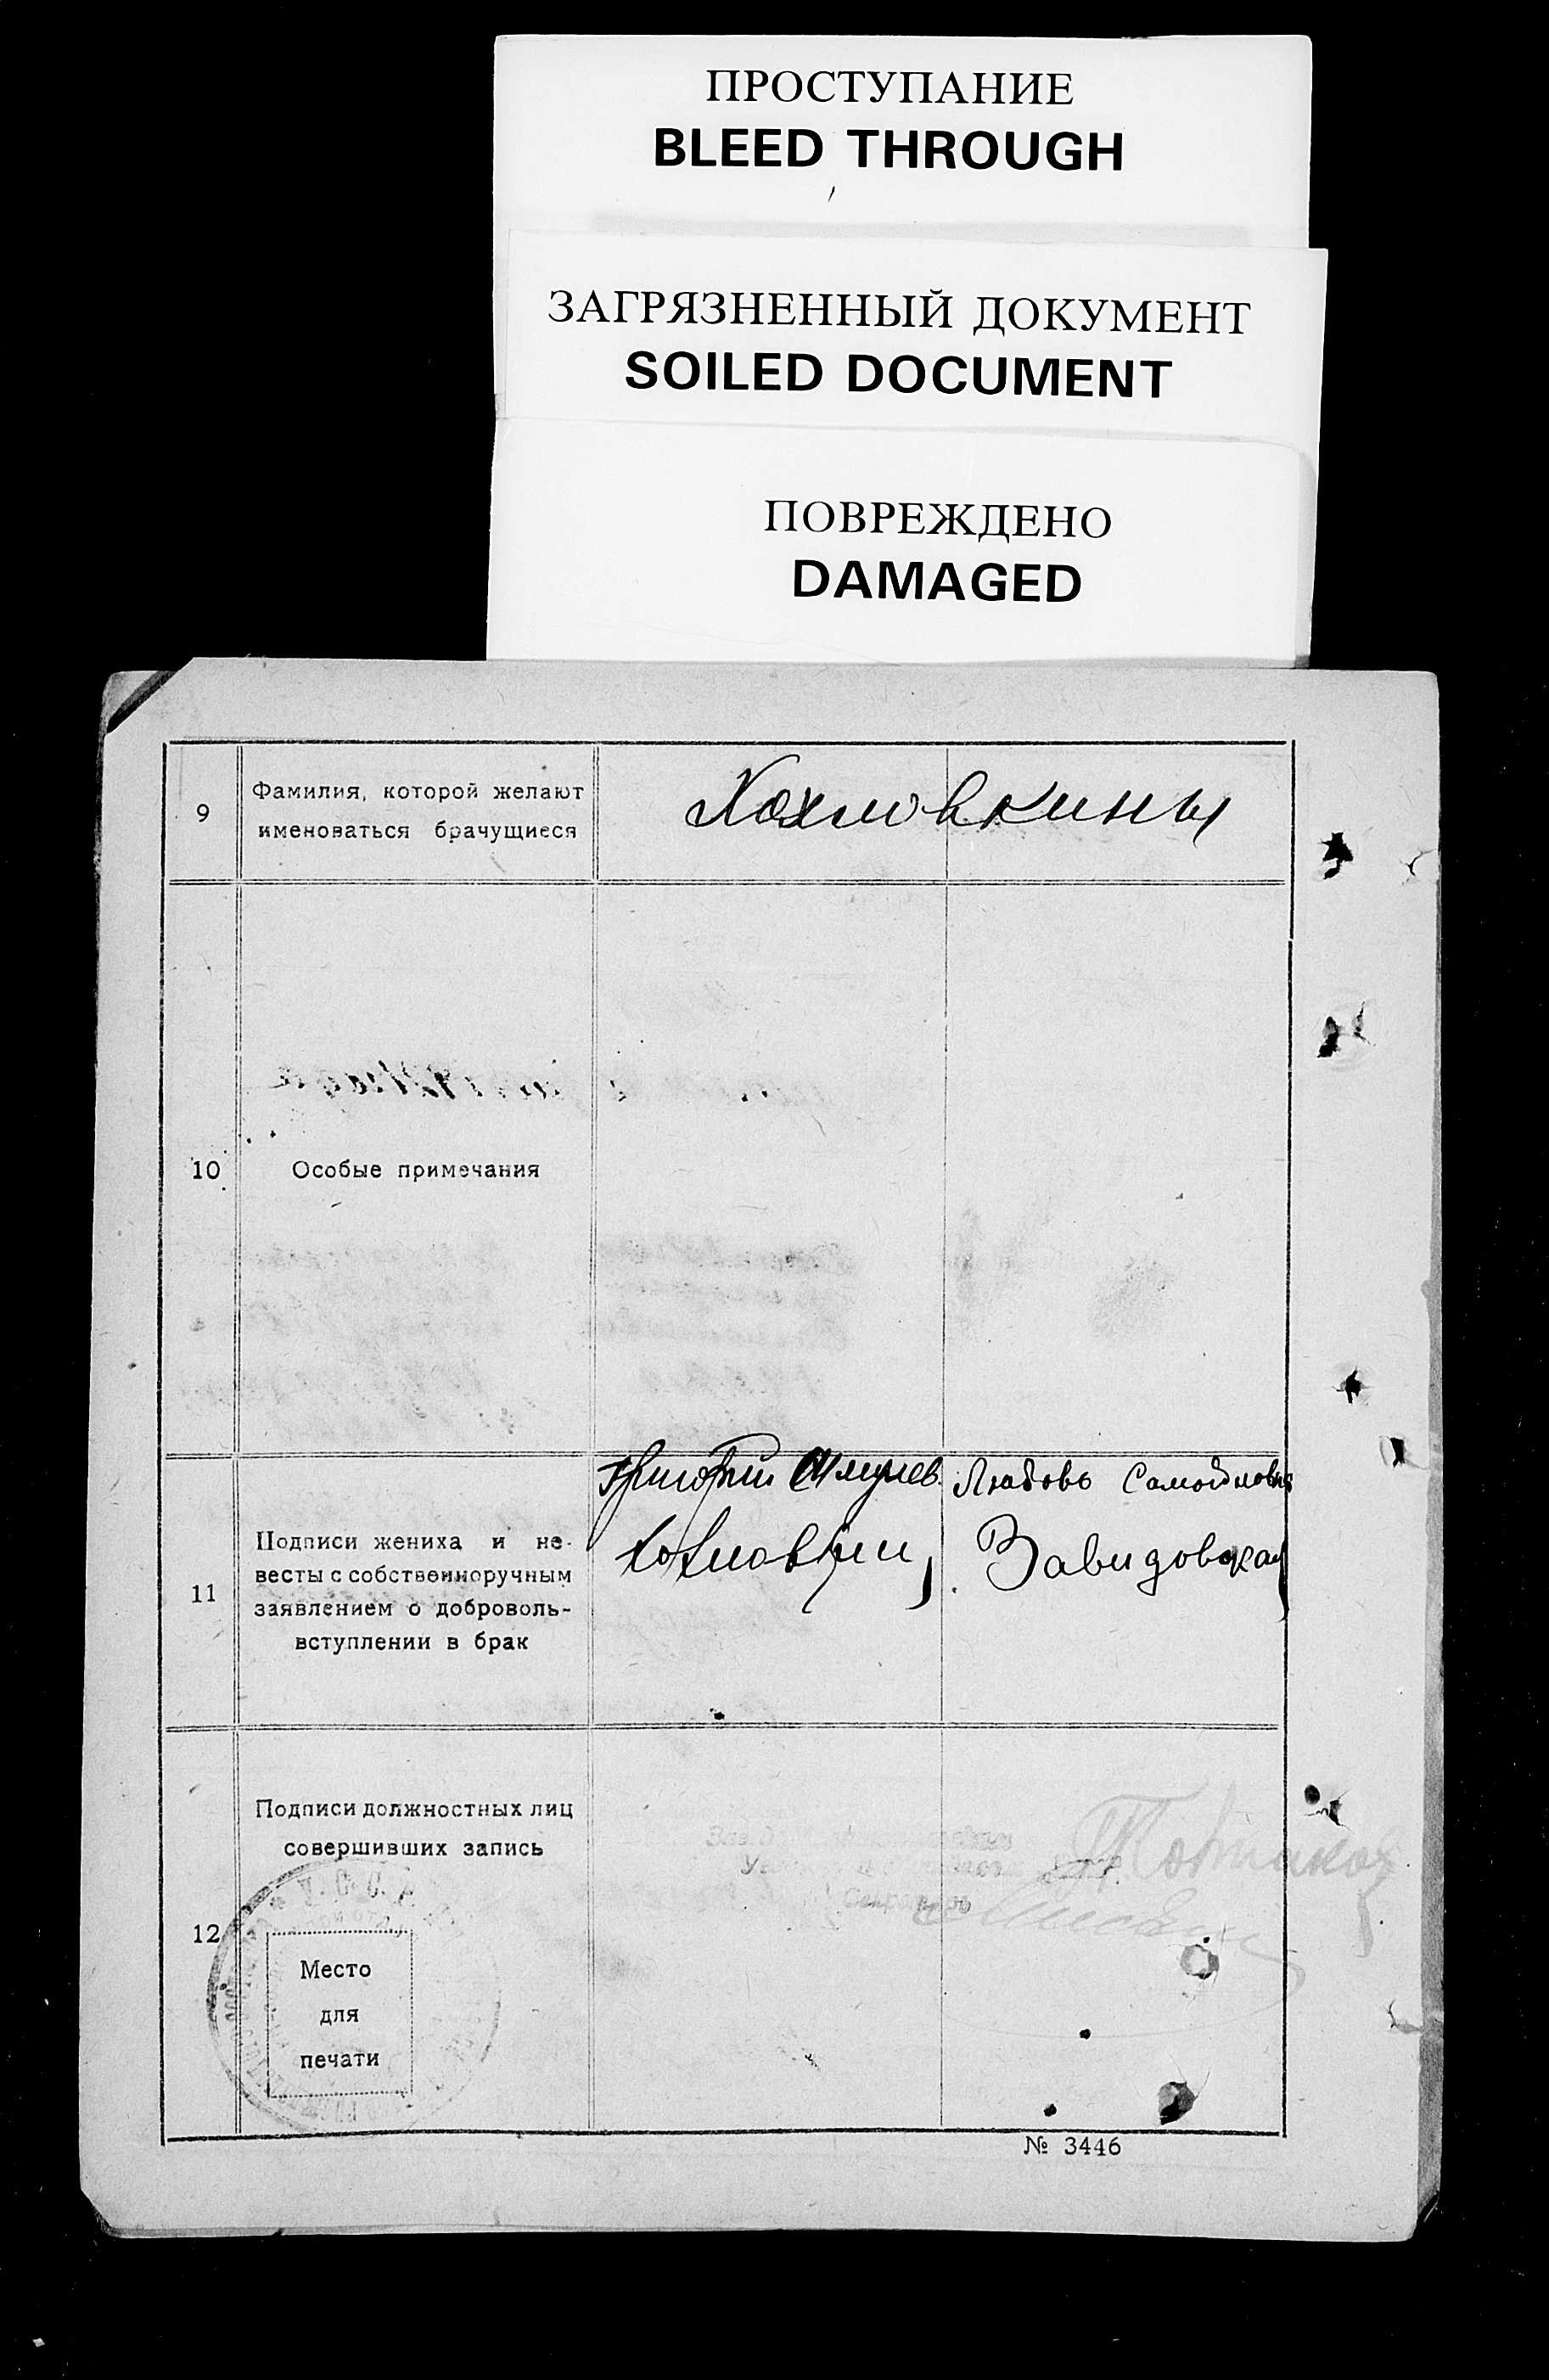 ПРОСТУПАНИЕ
BLEED THROUGH
ЗАГРЯЗНЕННЫЙ ДОКУМЕНТ
SOILED DOCUMENT
ПОВРЕЖДЕНО
DAMAGED
9
Фамилия, которой желают
именоваться брачущиеся
Хохловкины
10
Особые примечания
11
Подписи жениха и не-
весты с собственноручным
заявлением о доброволь-
вступлении в брак
Григорий
Хохловкин
Любовь Самойловна
Завидовская
12
Подписи должностных лиц
совершивших запись
Место
для
печати
Секретарь
№ 3446